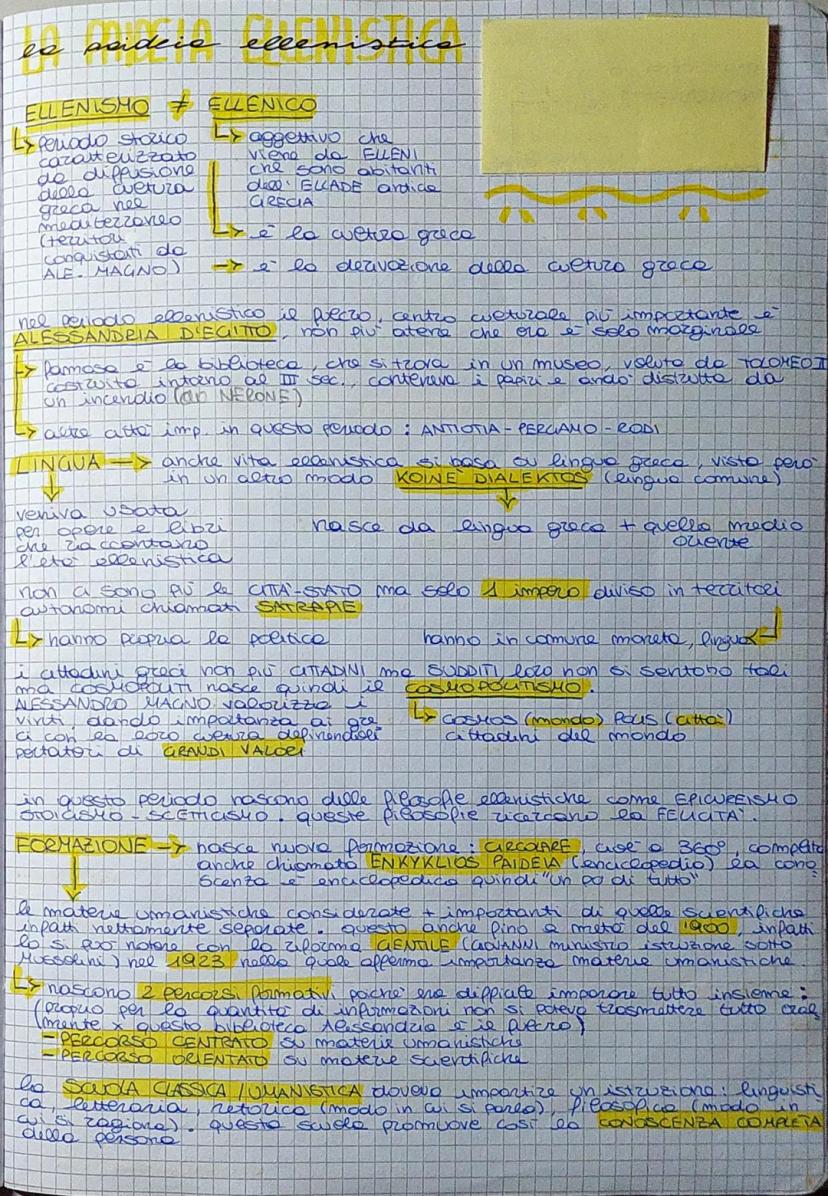 LA PAIDEIA ELLENISTICA
la paideia ellenistica
ELLENISMO ≠ ELLENICO
↳ periodo storico
caratterizzato
da diffusione
della cultura
greca nel
mediterraneo
(territori
conquistati da
ALE. MAGNO)
↳ aggettivo che
viene da ELLENI
che sono abitanti
dell' ELLADE antica
GRECIA
↳ è la cultura greca
→ è la derivazione della cultura greca
nel periodo ellenistico il fulcro, centro culturale più importante è
ALESSANDRIA D'EGITTO, non più atene che ora è solo marginale
↳ famosa è la biblioteca, che si trova in un museo, voluto da TOLOMEO II
costruita intorno al III sec., conteneva i papiri e andò distrutta da
un incendio (di NERONE)
↳ altre città imp. in questo periodo: ANTIOTIA - PERGAMO - RODI
LINGUA → anche vita ellenistica si basa su lingua greca, vista però
in un altro modo KOINE' DIALEKTOS (lingua comune)
↓
veniva usata
per opere e libri
che raccontano
l'età ellenistica
↓
nasce da lingua greca + quella medio
oriente
non ci sono più le CITTÀ-STATO ma solo 1 impero diviso in territori
autonomi chiamati SATRAPIE
↳ hanno propria la politica
hanno in comune moneta, lingua
i cittadini greci non più CITTADINI ma SUDDITI loro non si sentono tali
ma COSMOPOLITI nasce quindi il COSMOPOLITISMO.
ALESSANDRO MAGNO valorizza i
vinti, dando importanza ai gre
ci con la loro cultura definendoli
portatori di GRANDI VALORI
↳ COSMOS (mondo) POLIS (città)
cittadini del mondo
in questo periodo nascono delle filosofie ellenistiche come EPICUREISMO
STOICISMO - SCETTICISMO. queste filosofie ricercano la FELICITÀ.
FORMAZIONE → nasce nuova formazione: CIRCOLARE, cioè a 360°, completa
anche chiamata ENKYKLIOS PAIDEIA (enciclopedia) la cono
scenza è enciclopedica quindi "un po di tutto"
↓
le materie umanistiche considerate + importanti di quelle scientifiche
infatti nettamente separate. questo anche fino a metà del 1900, infatti
lo si può notare con la riforma GENTILE (GIOVANNI ministro istruzione sotto
Mussolini) nel 1923 nella quale afferma importanza materie umanistiche
↳ nascono 2 percorsi formativi poiché era difficile imparare tutto insieme:
(proprio per la quantità di informazioni non si poteva trasmettere tutto oral
mente x questo biblioteca Alessandria è il fulcro)
- PERCORSO CENTRATO su materie umanistiche
- PERCORSO ORIENTATO su materie scientifiche
la SCUOLA CLASSICA / UMANISTICA doveva impartire un istruzione: linguisti
ca, letteraria, retorica (modo in cui si parla), filosofica (modo in
cui si ragiona). questa scuola promuove così la CONOSCENZA COMPLETA
della persona